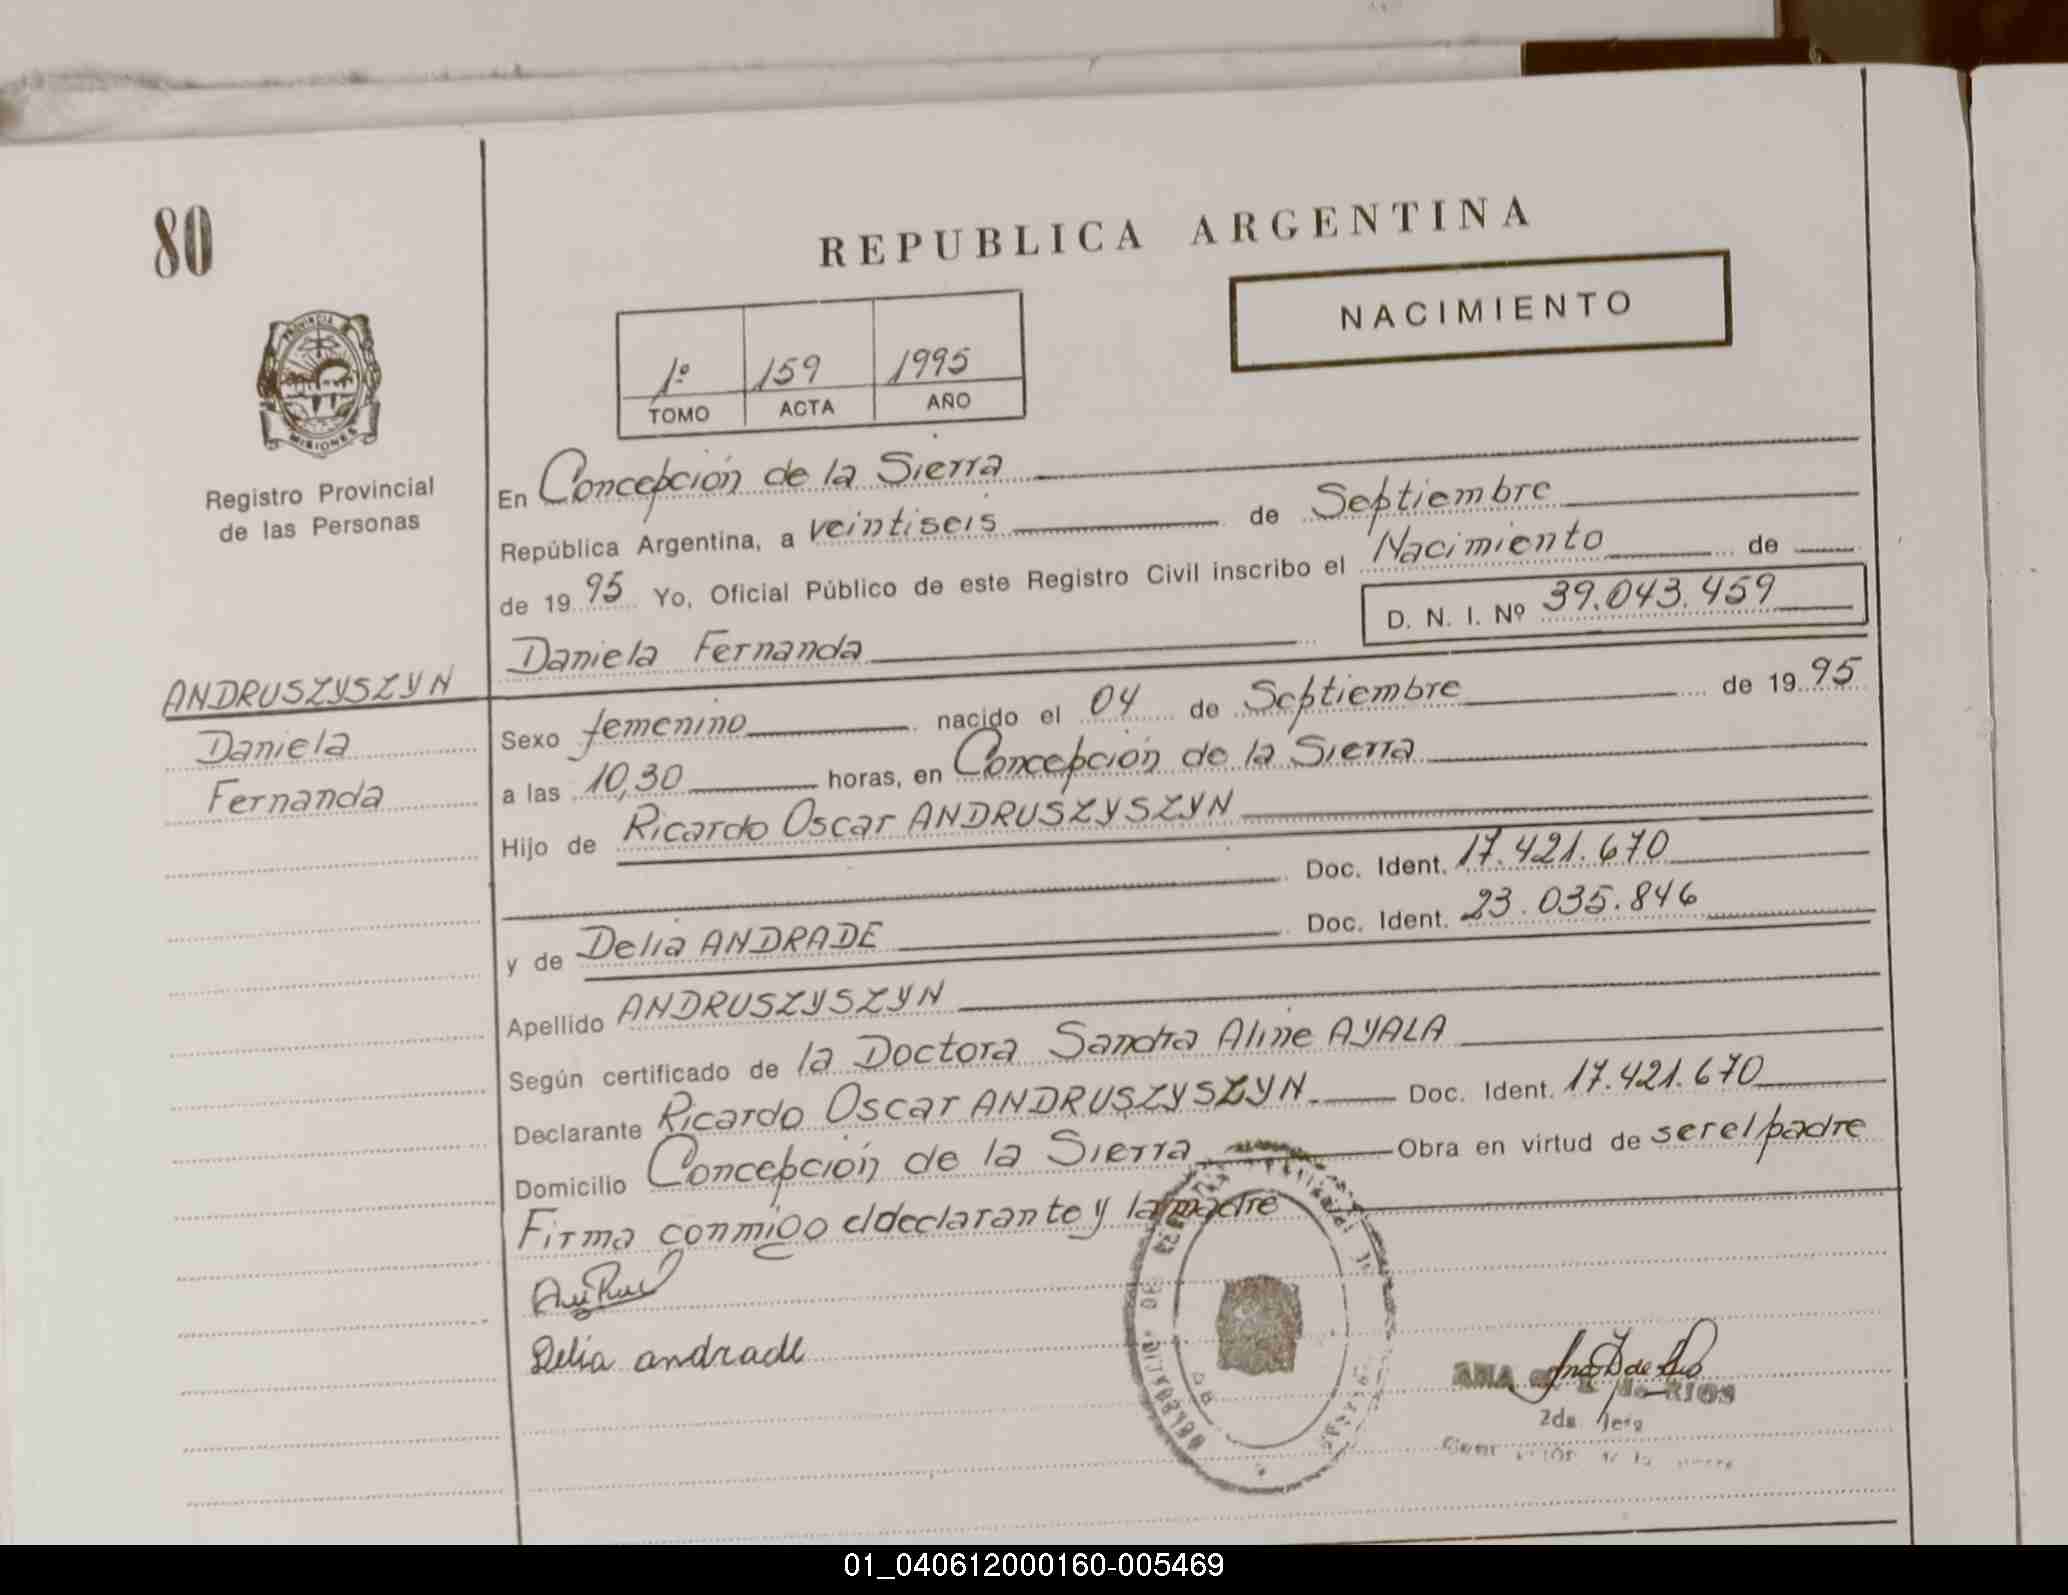 80
REPUBLICA ARGENTINA
NACIMIENTO
1º 159 1995
TOMO ACTA AÑO
PROVINCIA DE
MISIONES
Registro Provincial
de las Personas
En Concepción de la Sierra
República Argentina, a veintiseis de Septiembre
de 1995 Yo, Oficial Público de este Registro Civil inscribo el Nacimiento de
D. N. I. Nº 39.043.459
Daniela Fernanda
ANDRUSZYSZYN
Daniela
Fernanda
Sexo femenino nacido el 04 de Septiembre de 1995
a las 10,30 horas, en Concepción de la Sierra
Hijo de Ricardo Oscar ANDRUSZYSZYN
Doc. Ident. 17.421.670
y de Delia ANDRADE Doc. Ident. 23.035.846
Apellido ANDRUSZYSZYN
Según certificado de la Doctora Sandra Aline AYALA
Declarante Ricardo Oscar ANDRUSZYSZYN Doc. Ident. 17.421.670
Domicilio Concepción de la Sierra Obra en virtud de ser el padre
Firma conmigo el declarante y la madre
Delia andrade
ANA de RIOS
2da Jefe
de la
01_040612000160-005469